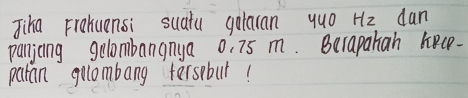 Jika Frekuensi suatu getaran 440 Hz dan
panjang gelombangnya 0,75 m. Berapakah kece-
patan gelombang tersebut !